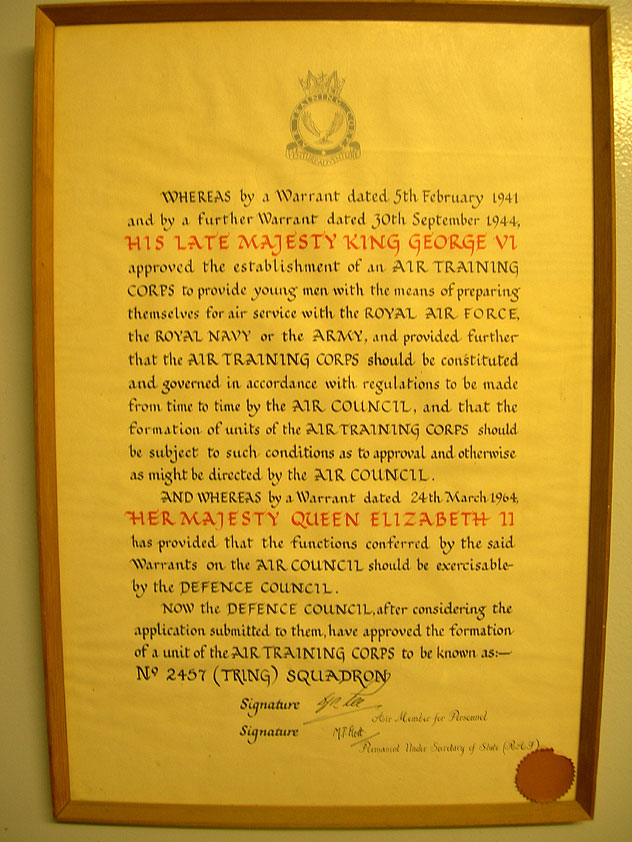 AIR TRAINING CORPS
VENTURE ADVENTURE
WHEREAS by a Warrant dated 5th February 1941
and by a further Warrant dated 30th September 1944,
HIS LATE MAJESTY KING GEORGE VI
approved the establishment of an AIR TRAINING
CORPS to provide young men with the means of preparing
themselves for air service with the ROYAL AIR FORCE,
the ROYAL NAVY or the ARMY, and provided further
that the AIR TRAINING CORPS should be constituted
and governed in accordance with regulations to be made
from time to time by the AIR COUNCIL, and that the
formation of units of the AIR TRAINING CORPS should
be subject to such conditions as to approval and otherwise
as might be directed by the AIR COUNCIL.
AND WHEREAS by a Warrant dated 24th March 1964,
HER MAJESTY QUEEN ELIZABETH II
has provided that the functions conferred by the said
Warrants on the AIR COUNCIL should be exercisable-
by the DEFENCE COUNCIL.
NOW the DEFENCE COUNCIL, after considering the
application submitted to them, have approved the formation
of a unit of the AIR TRAINING CORPS to be known as:—
Nº 2457 (TRING) SQUADRON
Signature
Air Member for Personnel
Signature
Permanent Under Secretary of State (RAF)